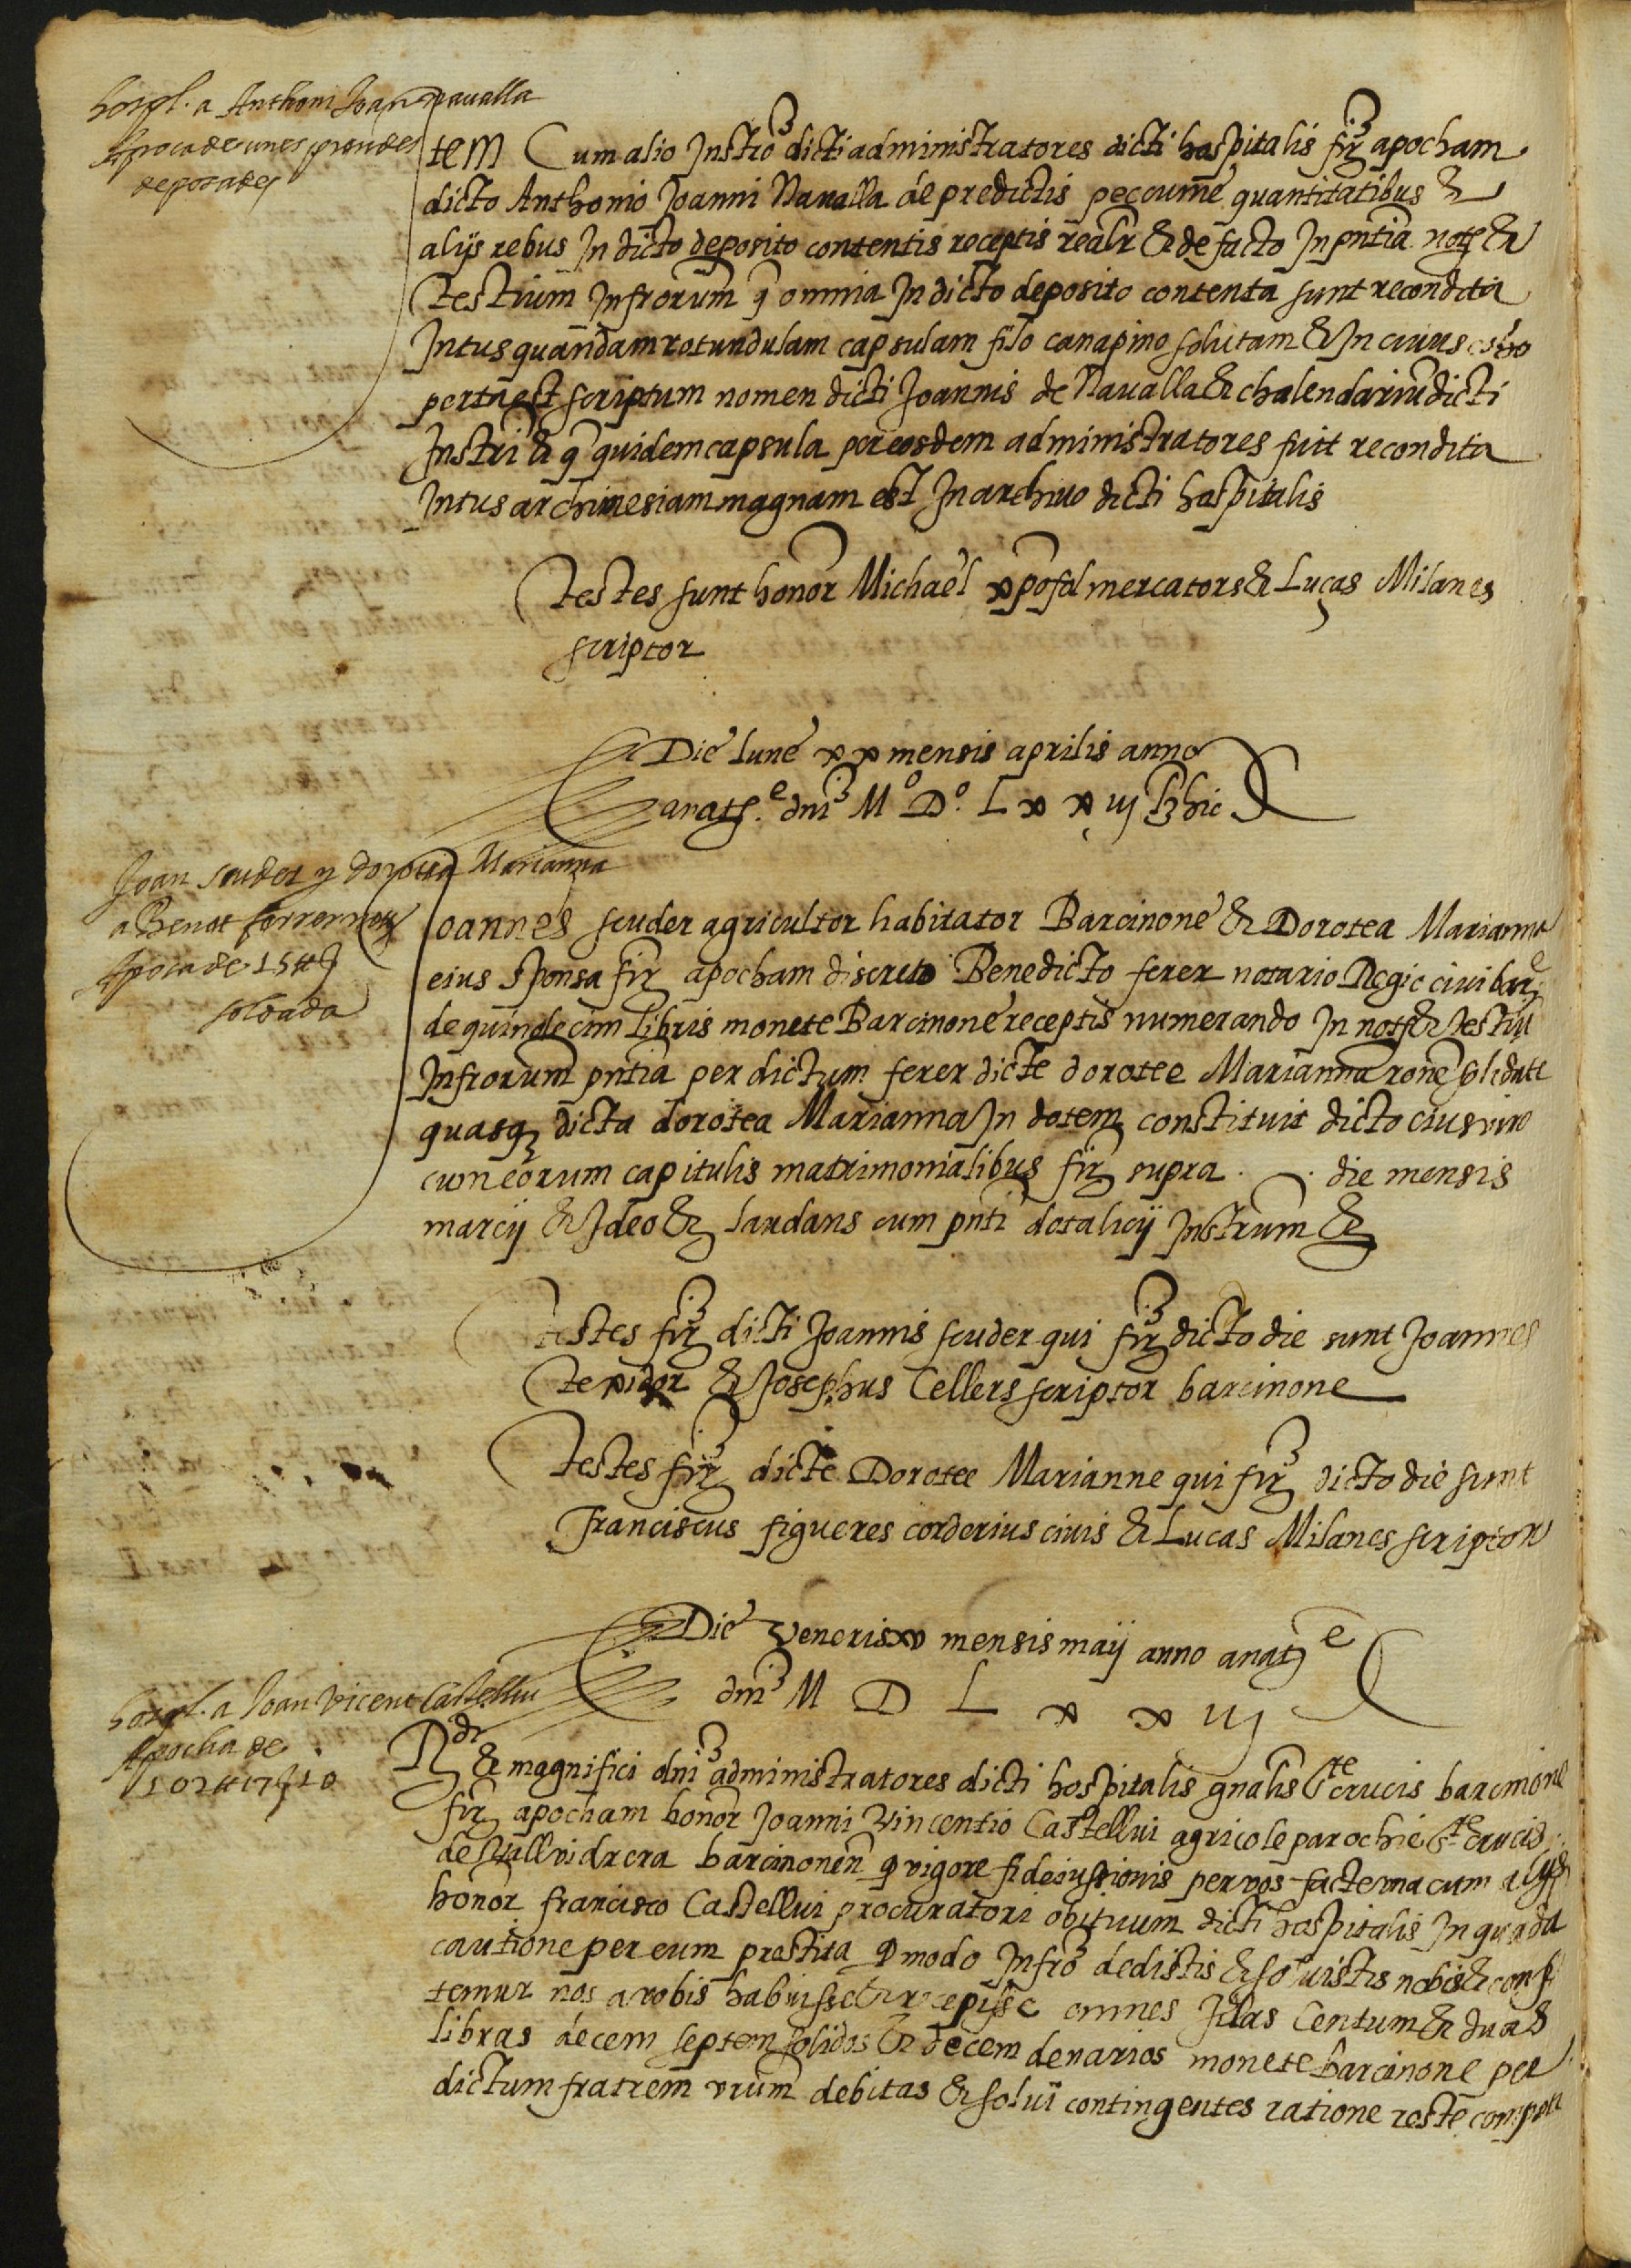 hospl. a Anthoni Joan Navalla
Apoca de unes prendes
deposades
Item Cum alio Instro dicti administratores dicti hospitalis fir apocham
dicto Anthonio Joanni Navalla de predictis peccume quantitatibus &
alijs rebus In dicto deposito contentis receptis realr & de facto In pntia not &
testium Infrorum q omnia In dicto deposito contenta sunt recondita
Intus quandam rotundulam capsulam filo canapino solutam & In cuius
est scriptum nomen dicti Joannis de Navalla & chalendariu dicti
Instri & q quidem capsula per eosdem administratores fuit recondita
Intus archimesiam magnam est In archivo dicti hospitalis
Testes sunt honor Michael xpofol mercators & Lucas Milanes
scriptor
Die lune xx mensis aprilis anno
anat.e dni Mo Do L x x iij hic
Joan scuder y dorotea Marianna
a Benet ferrer not
Apoca de 15 ₶
soldada
Joannes scuder agricultor habitator Barcinone & Dorotea Marianna
eius sponsa fir apocham discreto Benedicto ferer notario Regie civi bar
de quindecim libris monete Barcinone receptis numerando In not & testiu
Infrorum pntia per dictum ferer dicte dorotee Marianna rone solidate
quasq dicta dorotea Marianna In dotem constituit dicto eius viro
cum eorum capitulis matrimonialibus fir supra . . die mensis
marcij & Ideo & laudans cum pnti dotalicij Instrum &
Testes fir dicti Joannis scuder qui fir dicto die sunt Joannes
texidor & Josephus Cellers scriptor barcinone
Testes fir dicte Dorotee Marianne qui fir dicto die sunt
Franciscus figueres corderius civis & Lucas Milanes scriptor
Die Veneris xv mensis maij anno anat e
dni M D L x x iij
hospl. a Joan Vicent Castellvi
Apocha de
102 ₶ 17 § 10
Rdi & magnifici dni administratores dicti hospitalis gnalis Ste crucis barcinone
fir apocham honor Joanni Vincentio Castellvi agricole parochie Ste crucis
de Vallvidrera barcinonen q vigore fideiussionis per vos facte una cum alijs
honor francisco Castellvi procuratori obituum dicti hospitalis In quada
cautione per eum prestita q modo Infro dedistis & solvistis nobis & conf
temur nos a vobis habuisse & recepisse omnes Illas Centum & duas
libras decem septem solidos & decem denarios monete barcinone per
dictum fratrem vrum debitas & solvi contingentes ratione reste